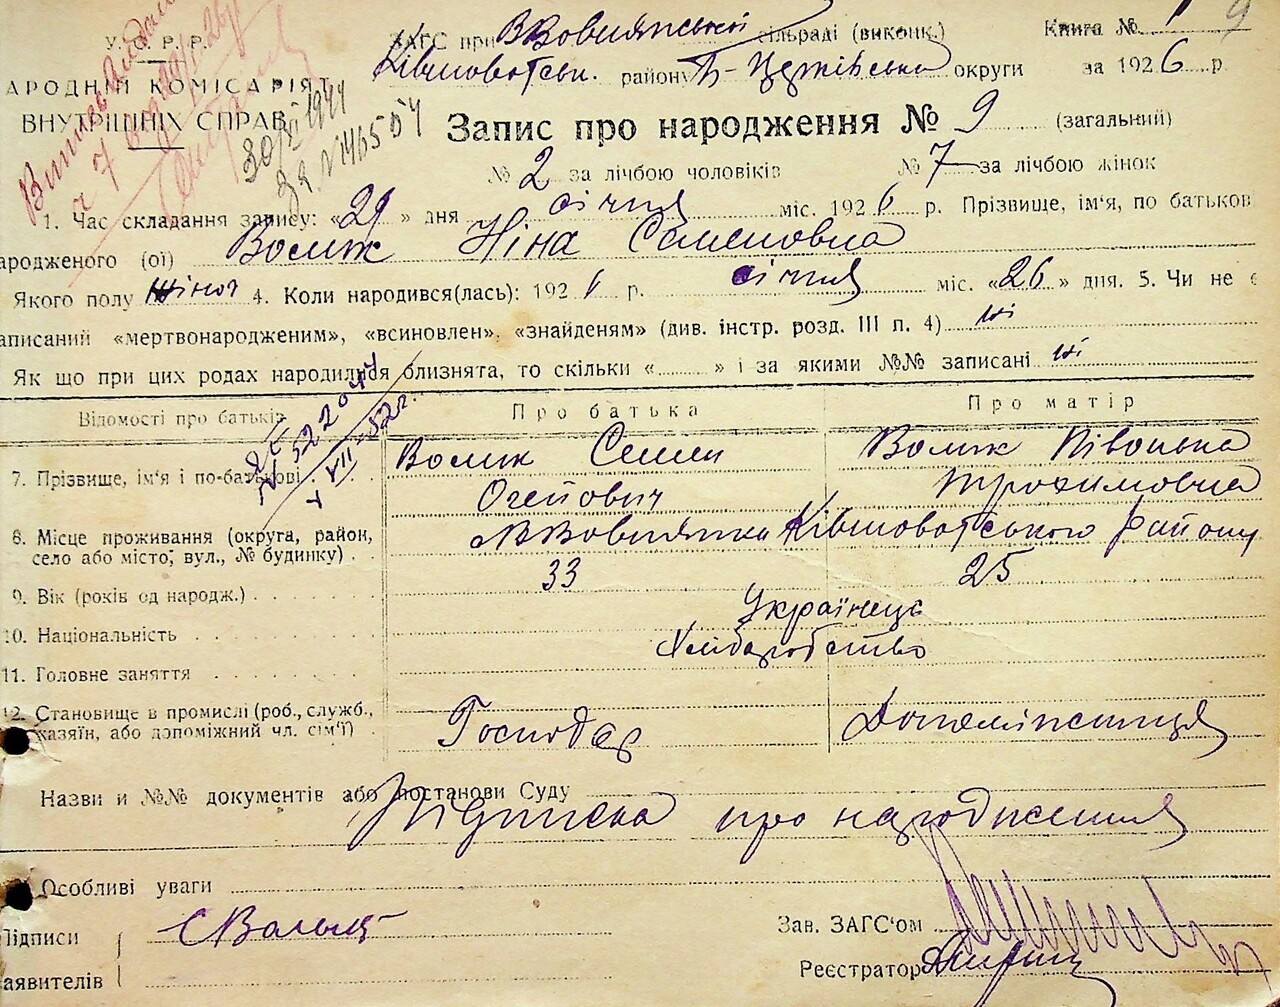 У. С. Р. Р.
ЗАГС при ВВовнянській сільраді (виконк.) Книга № 1 9
Ківшоватськ. району Б-Церківська округи за 1926 р.
АРОДНІЙ КОМІСАРІЯТ
ВНУТРІШНІХ СПРАВ
30/III 1944
Запис про народження № 9 (загальний)
№ 2 за лічбою чоловіків № 7 за лічбою жінок
1. Час складання запису: «29» дня січня міс. 1926 р. Прізвище, ім'я, по батьков
ародженого (ої) Волик Ніна Семеновна
Якого полу жіноч 4. Коли народився(лась): 1926 р. січня міс. «26» дня. 5. Чи не є
аписаний «мертвонародженим», «всиновлен», «знайденям» (див. інстр. розд. III п. 4) ні
Як що при цих родах народилися близнята, то скільки «...» і за якими №№ записані ні
Відомості про батьків Про батька Про матір
7. Прізвище, ім'я і по-батькові Волик Семен Волик Півонька
Трохимовна
8. Місце проживання (округа, район, ВВовнянка Ківшоватського району
село або місто, вул., № будинку)
9. Вік (років од народж.) 33 25
10. Національність Українець
11. Головне заняття Хліборобство
12. Становище в промислі (роб., служб., Господар
хазяїн, або допоміжний чл. сім'ї)
Назви и №№ документів або постанови Суду
Підписка про народження
Особливі уваги
Підписи
Зав. ЗАГС'ом
Реєстратор
аявителів